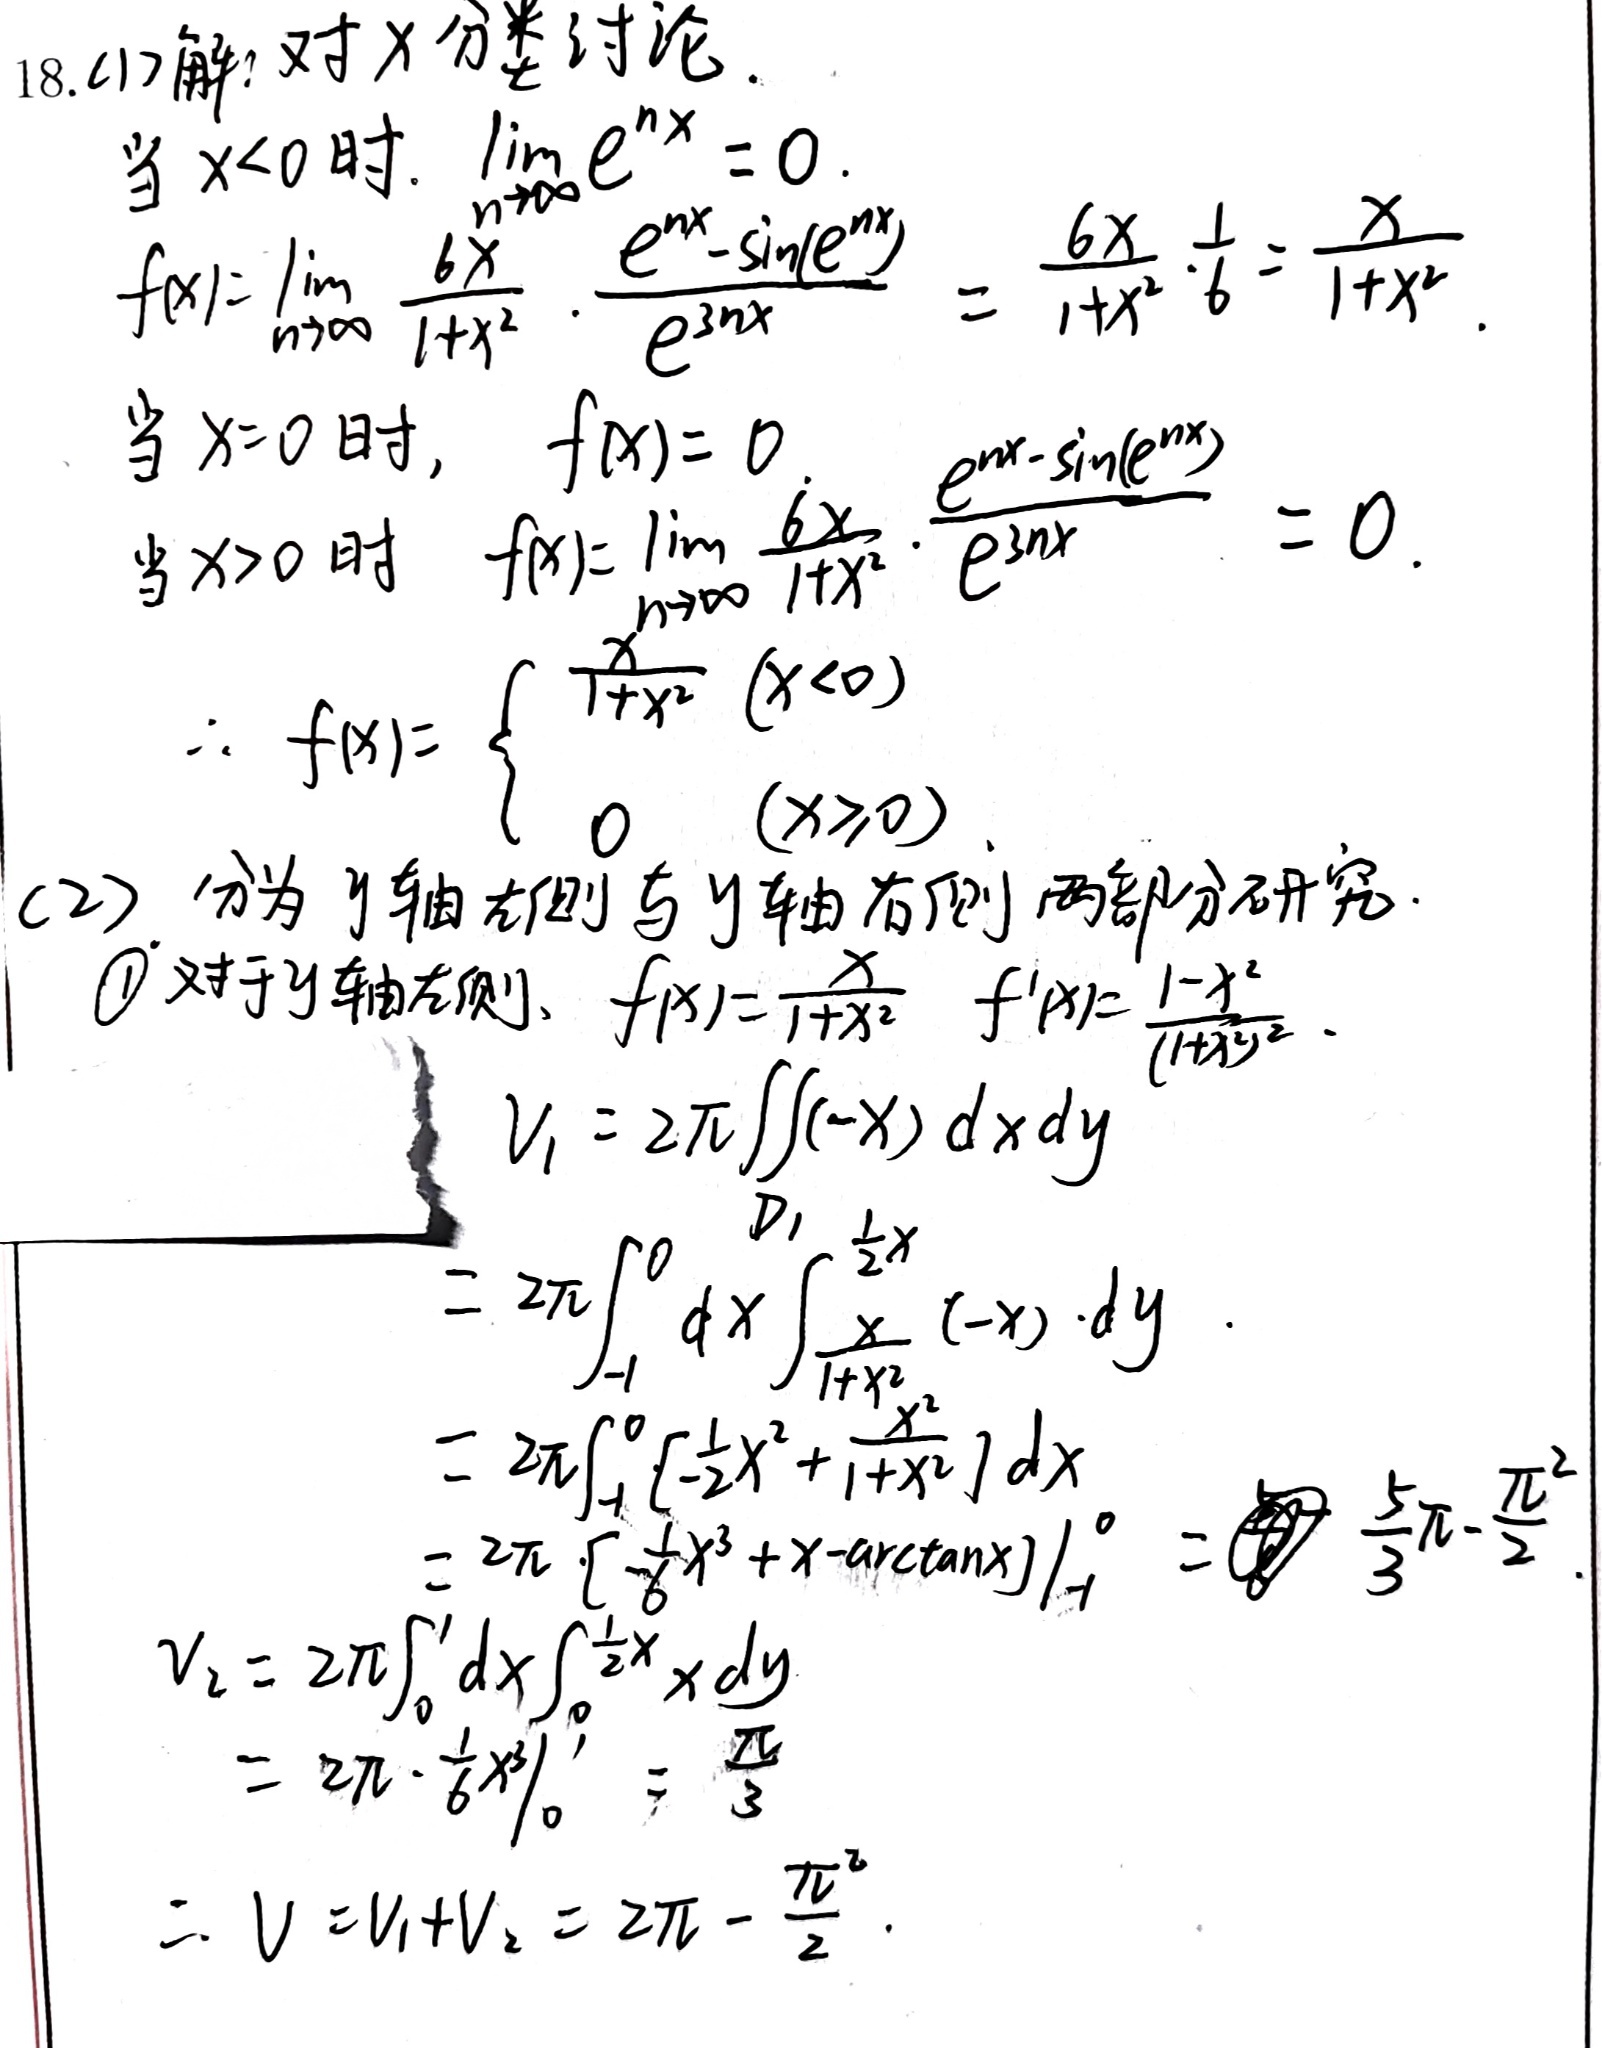 18.(1)解:对x分类讨论.
当 x<0 时. lim_{n→∞} e^{nx} = 0.
f(x)= lim_{n→∞} \frac{6x}{1+x²} · \frac{e^{nx}-sin(e^{nx})}{e^{3nx}} = \frac{6x}{1+x²} · \frac{1}{6} = \frac{x}{1+x²}.
当 x=0 时, f(x)= 0.
当 x>0 时 f(x)= lim_{n→∞} \frac{6x}{1+x²} · \frac{e^{nx}-sin(e^{nx})}{e^{3nx}} = 0.
∴ f(x)= { \frac{x}{1+x²} (x<0)
0 (x≥0).
(2) 分为y轴左侧与y轴右侧两部分研究.
① 对于y轴左侧、 f(x)= \frac{x}{1+x²} f'(x)= \frac{1-x²}{(1+x²)²}.
V₁ = 2π ∬_{D₁} (-x) dxdy
= 2π ∫_{-1}^{0} dx ∫_{\frac{x}{1+x²}}^{\frac{1}{2}x} (-x)·dy.
= 2π ∫_{-1}^{0} [-\frac{1}{2}x² + \frac{x²}{1+x²}] dx
= 2π·[-\frac{1}{6}x³ + x-arctanx] |_{-1}^{0} = \frac{5}{3}π - \frac{π²}{2}.
V₂ = 2π ∫_{0}^{1} dx ∫_{0}^{\frac{1}{2}x} x dy
= 2π · \frac{1}{6}x³ |_{0}^{1} = \frac{π}{3}
∴ V = V₁+V₂ = 2π - \frac{π²}{2}.